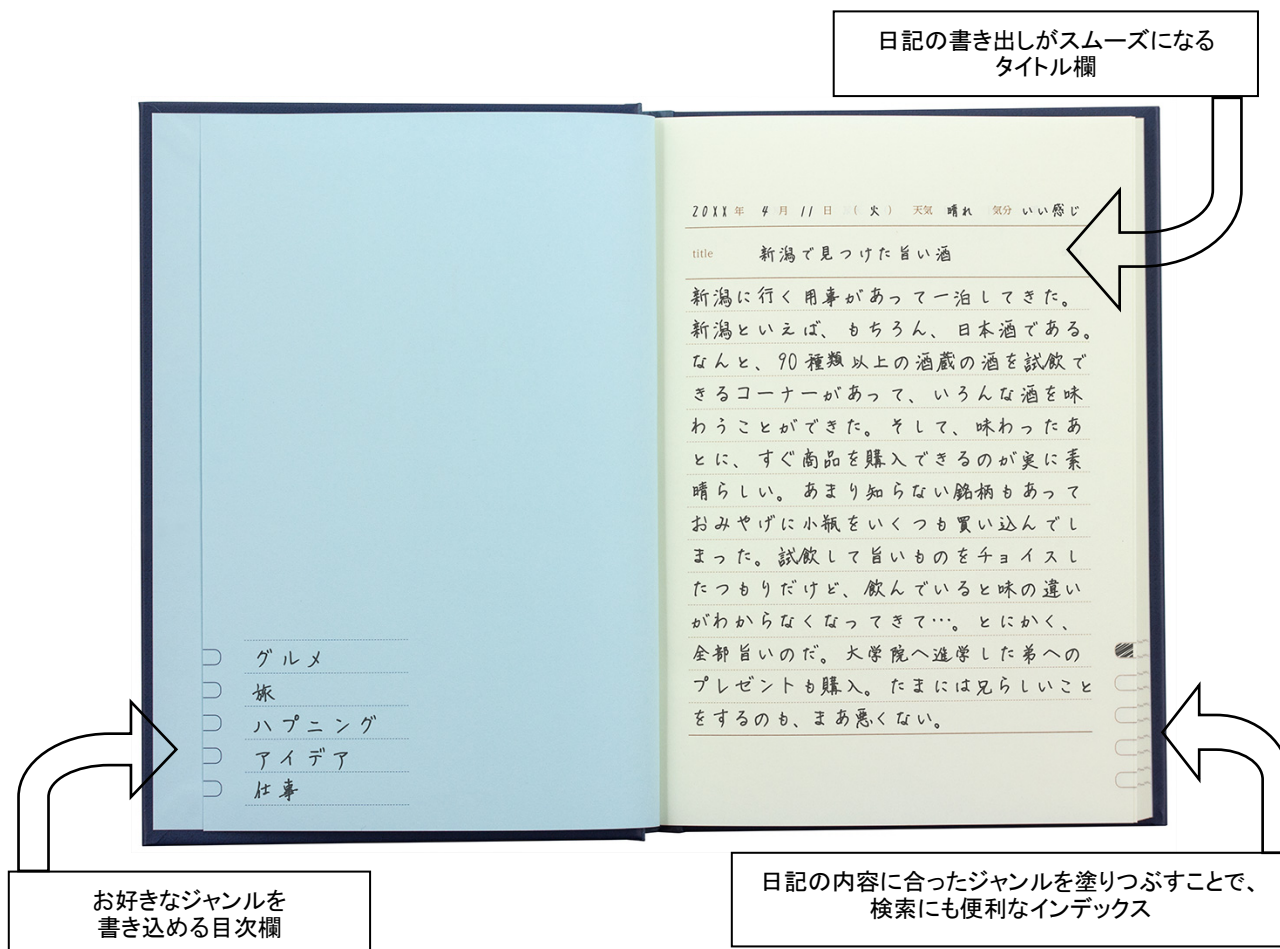 日記の書き出しがスムーズになる
タイトル欄
20XX年 4月 11日 (火) 天気 晴れ 気分 いい感じ
title 新潟で見つけた旨い酒
新潟に行く用事があって一泊してきた。
新潟といえば、もちろん、日本酒である。
なんと、90種類以上の酒蔵の酒を試飲で
きるコーナーがあって、いろんな酒を味
わうことができた。そして、味わったあ
とに、すぐ商品を購入できるのが実に素
晴らしい。あまり知らない銘柄もあって
おみやげに小瓶をいくつも買い込んでし
まった。試飲して旨いものをチョイスし
たつもりだけど、飲んでいると味の違い
がわからなくなってきて…。とにかく、
全部旨いのだ。大学院へ進学した弟への
プレゼントも購入。たまには兄らしいこと
をするのも、まあ悪くない。
グルメ
旅
ハプニング
アイデア
仕事
お好きなジャンルを
書き込める目次欄
日記の内容に合ったジャンルを塗りつぶすことで、
検索にも便利なインデックス